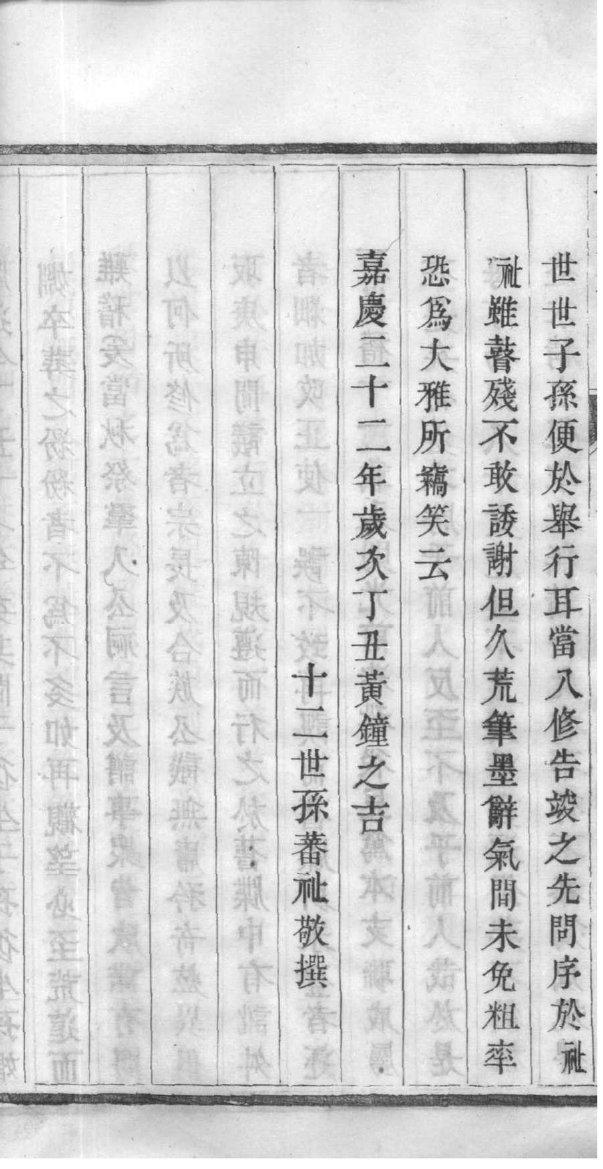 世世子孫便於舉行耳當入修告竣之先問序於祉
祉雖瞽殘不敢諉謝但久荒筆墨辭氣間未免粗率
恐爲大雅所竊笑云
嘉慶二十二年歲次丁丑黃鐘之吉
十二世孫蕃祉敬撰